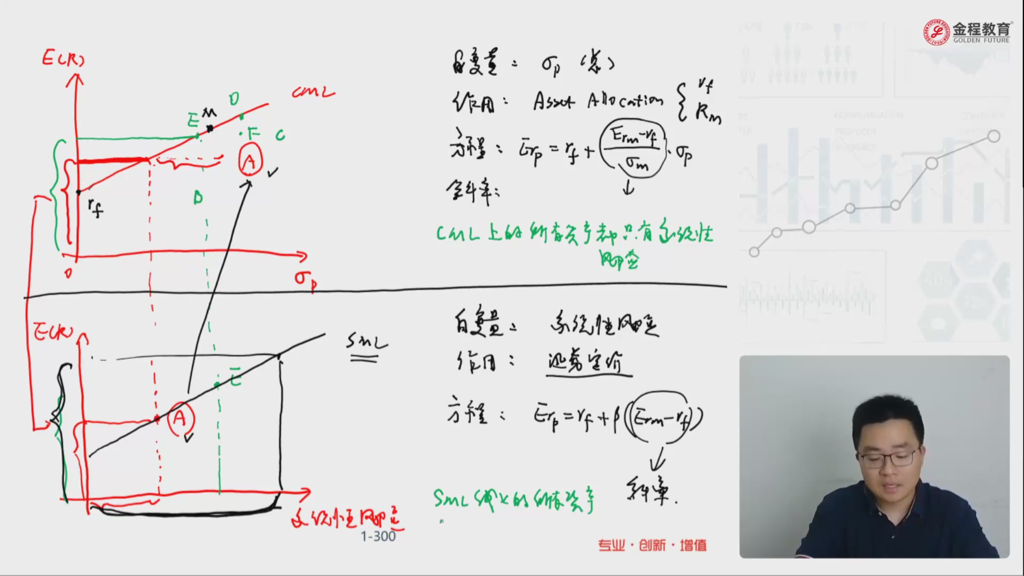 金程教育
GOLDEN FUTURE
E(R)
CML
D
M
E
F
C
A
B
rf
0
σp
自变量: σp (总)
作用: Asset Allocation { rf Rm
方程: Erp = rf + (Erm-rf)/σm · σp
斜率:
CML上的所有资产都只有系统性
风险
E(R)
SML
E
A
系统性风险
自变量: 系统性风险
作用: 证券定价
方程: Erp = rf + β(Erm-rf)
斜率.
SML线上的所有资产
1-300
专业·创新·增值